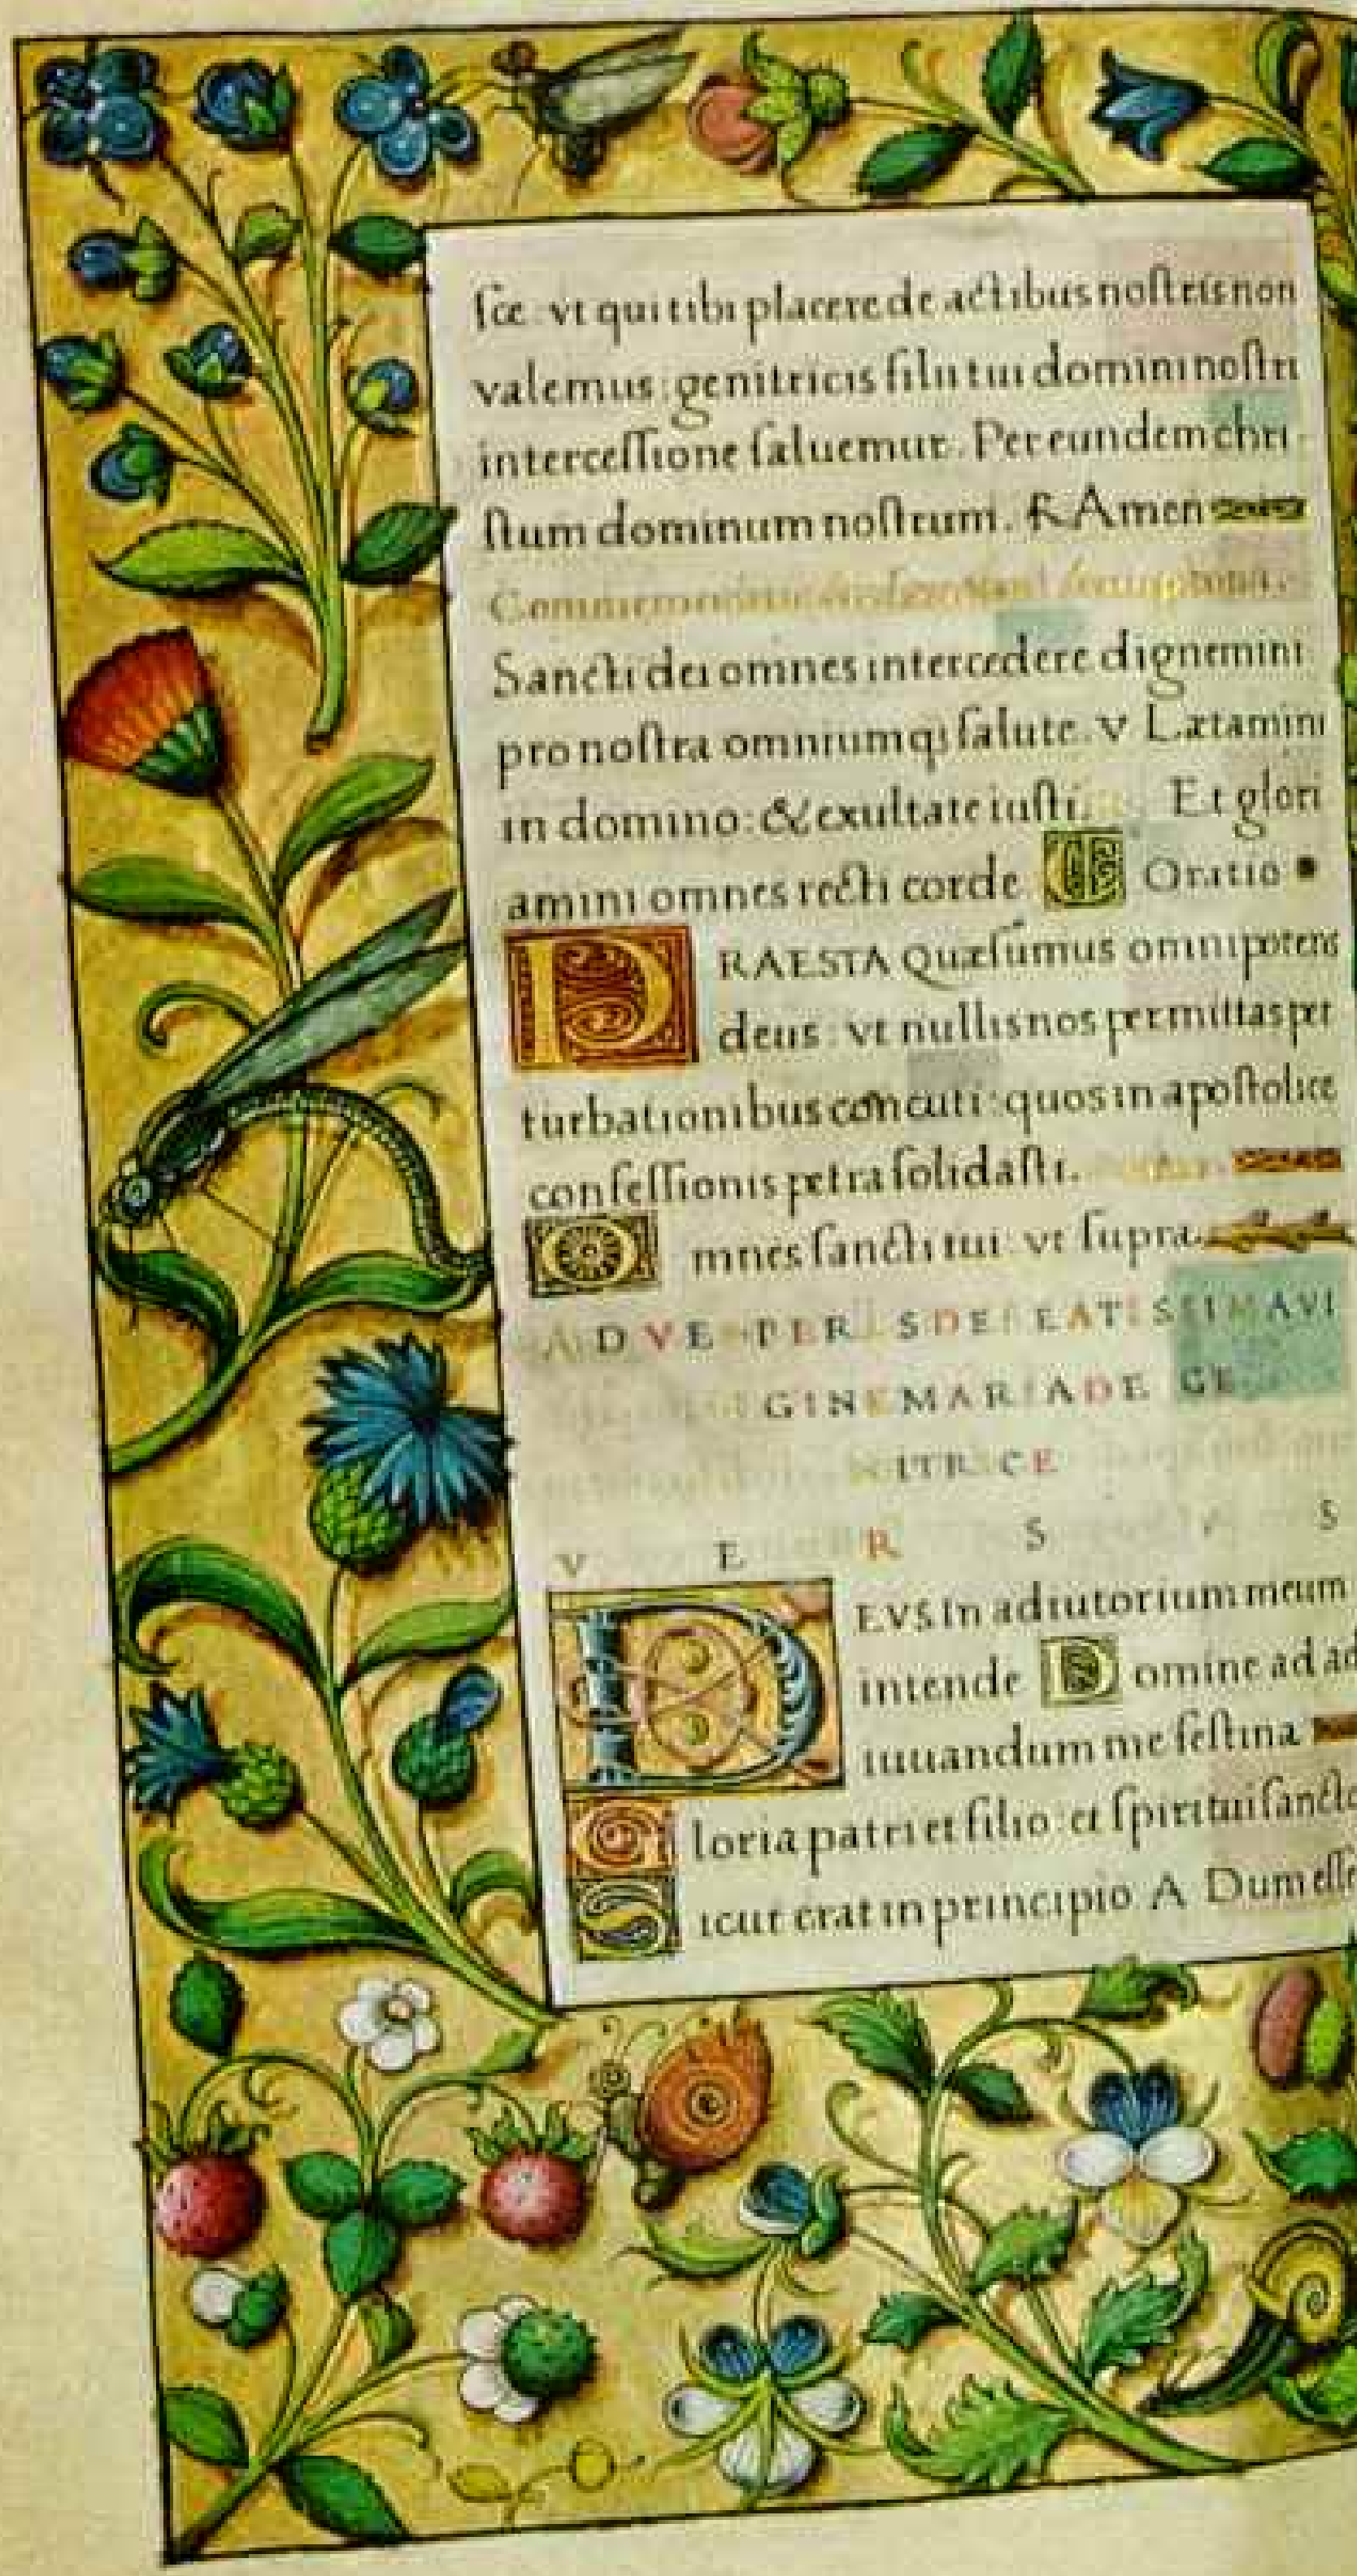 sce: vt qui tibi placere de actibus nostris non
valemus: genitricis filii tui domini nostri
intercessione saluemur. Per eundem chri
stum dominum nostrum. ℟ Amen
Sancti dei omnes intercedere dignemini
pro nostra omniumq; salute. v Lætamini
in domino: & exultate iusti. Et glori
amini omnes recti corde Oratio
PRAESTA Quæsumus omnipotens
deus: vt nullis nos permittas per
turbationibus concuti: quos in apostolice
confessionis petra solidasti.
Omnes sancti tui: vt supra.
AD VESPERIS DE BEATISSIMA VI
GINE MARIA DE GE
NITRICE
V E R S S
DEVS In adiutorium meum
intende Domine ad ad
iuuandum me festina
Gloria patri et filio: et spiritui sancto
Sicut erat in principio A Dum esse